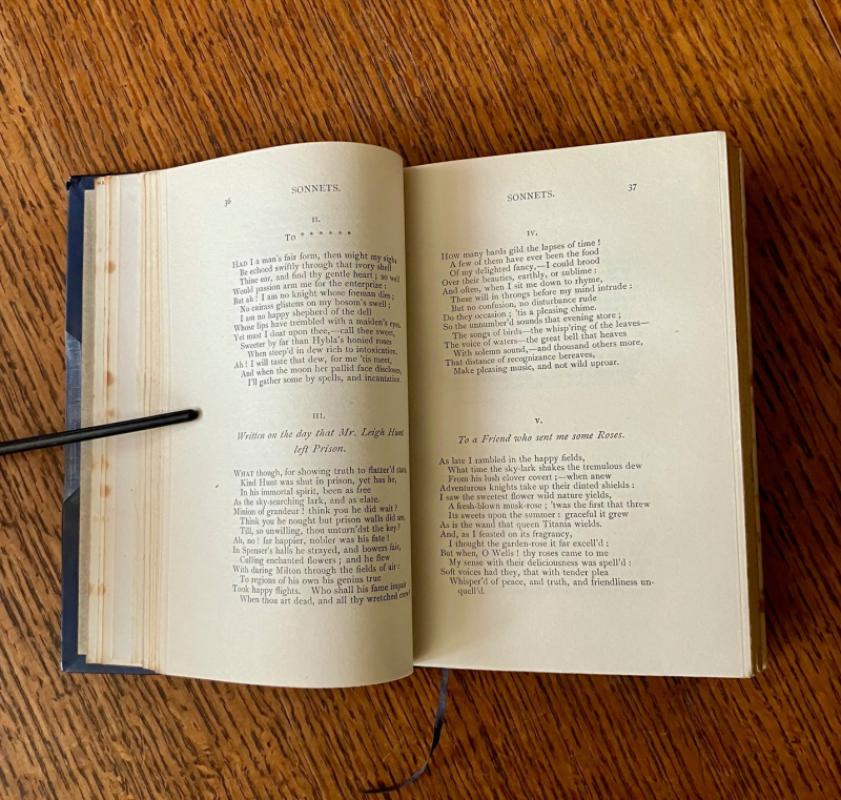 36
SONNETS.
II.
To * * * * * *
HAD I a man's fair form, then might my sighs
Be echoed swiftly through that ivory shell
Thine ear, and find thy gentle heart ; so well
Would passion arm me for the enterprize :
But ah ! I am no knight whose foeman dies ;
No cuirass glistens on my bosom's swell ;
I am no happy shepherd of the dell
Whose lips have trembled with a maiden's eyes.
Yet must I doat upon thee,—call thee sweet,
Sweeter by far than Hybla's honied roses
When steep'd in dew rich to intoxication.
Ah ! I will taste that dew, for me 'tis meet,
And when the moon her pallid face discloses,
I'll gather some by spells, and incantation.
III.
Written on the day that Mr. Leigh Hunt
left Prison.
WHAT though, for showing truth to flatter'd state,
Kind Hunt was shut in prison, yet has he,
In his immortal spirit, been as free
As the sky-searching lark, and as elate.
Minion of grandeur ! think you he did wait ?
Think you he nought but prison walls did see,
Till, so unwilling, thou unturn'dst the key ?
Ah, no ! far happier, nobler was his fate !
In Spenser's halls he strayed, and bowers fair,
Culling enchanted flowers ; and he flew
With daring Milton through the fields of air :
To regions of his own his genius true
Took happy flights. Who shall his fame impair
When thou art dead, and all thy wretched crew ?
SONNETS.
37
IV.
How many bards gild the lapses of time !
A few of them have ever been the food
Of my delighted fancy,—I could brood
Over their beauties, earthly, or sublime :
And often, when I sit me down to rhyme,
These will in throngs before my mind intrude :
But no confusion, no disturbance rude
Do they occasion ; 'tis a pleasing chime.
So the unnumber'd sounds that evening store ;
The songs of birds—the whisp'ring of the leaves—
The voice of waters—the great bell that heaves
With solemn sound,—and thousand others more,
That distance of recognizance bereaves,
Make pleasing music, and not wild uproar.
V.
To a Friend who sent me some Roses.
As late I rambled in the happy fields,
What time the sky-lark shakes the tremulous dew
From his lush clover covert ;—when anew
Adventurous knights take up their dinted shields :
I saw the sweetest flower wild nature yields,
A fresh-blown musk-rose ; 'twas the first that threw
Its sweets upon the summer : graceful it grew
As is the wand that queen Titania wields.
And, as I feasted on its fragrancy,
I thought the garden-rose it far excell'd :
But when, O Wells ! thy roses came to me
My sense with their deliciousness was spell'd :
Soft voices had they, that with tender plea
Whisper'd of peace, and truth, and friendliness un-
quell'd.